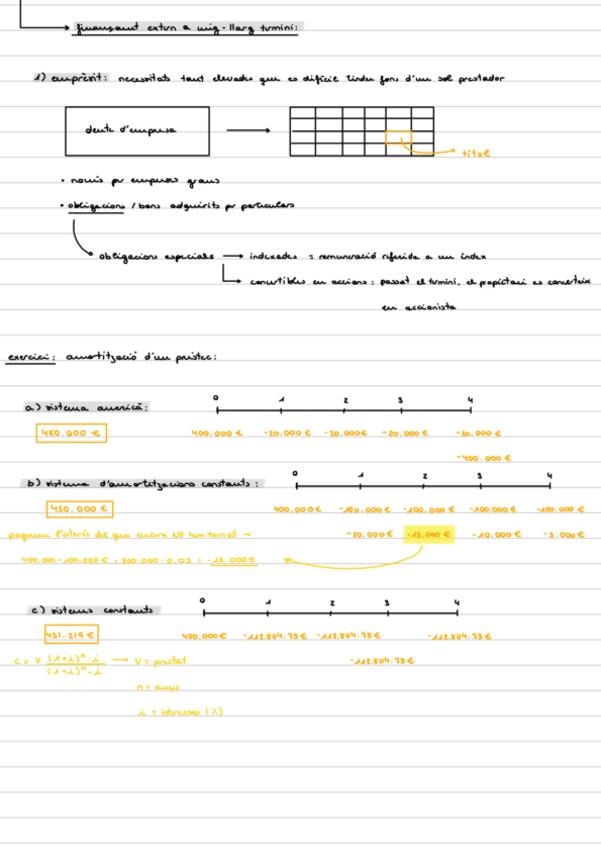 finançament extern a mig-llarg termini:
1) emprèstit: necessitats tant elevades que es difícil tindre fons d'un sol prestador
deute d'empresa
títol
· només per empreses grans
· obligacions / bons adquirits per particulars
obligacions especials → indexades = remuneració referida a un índex
convertibles en accions: passat el termini, el propietari es converteix
en accionista
exercici: amortització d'un préstec:
a) sistema americà:
0 1 2 3 4
480.000 €
400.000 € -20.000 € -20.000 € -20.000 € -20.000 €
-400.000 €
b) sistema d'amortitzacions constants:
0 1 2 3 4
450.000 €
400.000 € -100.000 € -100.000 € -100.000 € -100.000 €
paguem l'interés del que encara NO hem tornat →
-20.000 € -15.000 € -10.000 € -5.000 €
400.000-100.000 = 300.000 · 0,05 = -15.000 €
c) sistema constants
0 1 2 3 4
451.219 €
400.000 € -112.804,73 € -112.804,73 € -112.804,73 €
-112.804,73 €
C = V (1+i)ⁿ · i / (1+i)ⁿ - 1 → V = préstec
n = anys
i = interessos (%)